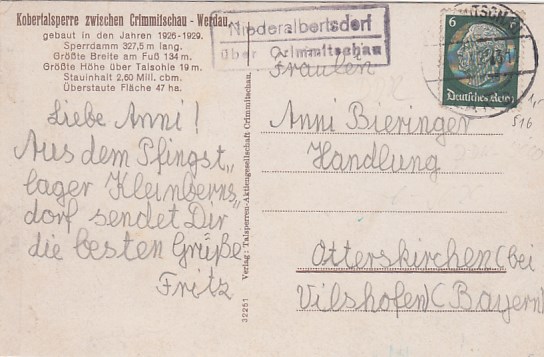 Kobertalsperre zwischen Crimmitschau - Werdau,
gebaut in den Jahren 1926-1929.
Sperrdamm 327,5 m lang.
Größte Breite am Fuß 134 m.
Größte Höhe über Talsohle 19 m.
Stauinhalt 2,60 Mill. cbm.
Überstaute Fläche 47 ha.
Niederalbertsdorf
über Crimmitschau
6
Deutsches Reich
Liebe Anni!
Aus dem Pfingst„
lager Kleinberns„
dorf sendet Dir
die besten Grüße
Fritz
32251 Verlag: Talsperren-Aktiengesellschaft Crimmitschau.
Fräulein
Anni Bieringer
Handlung
Otterskirchen (bei
Vilshofen) (Bayern)
516